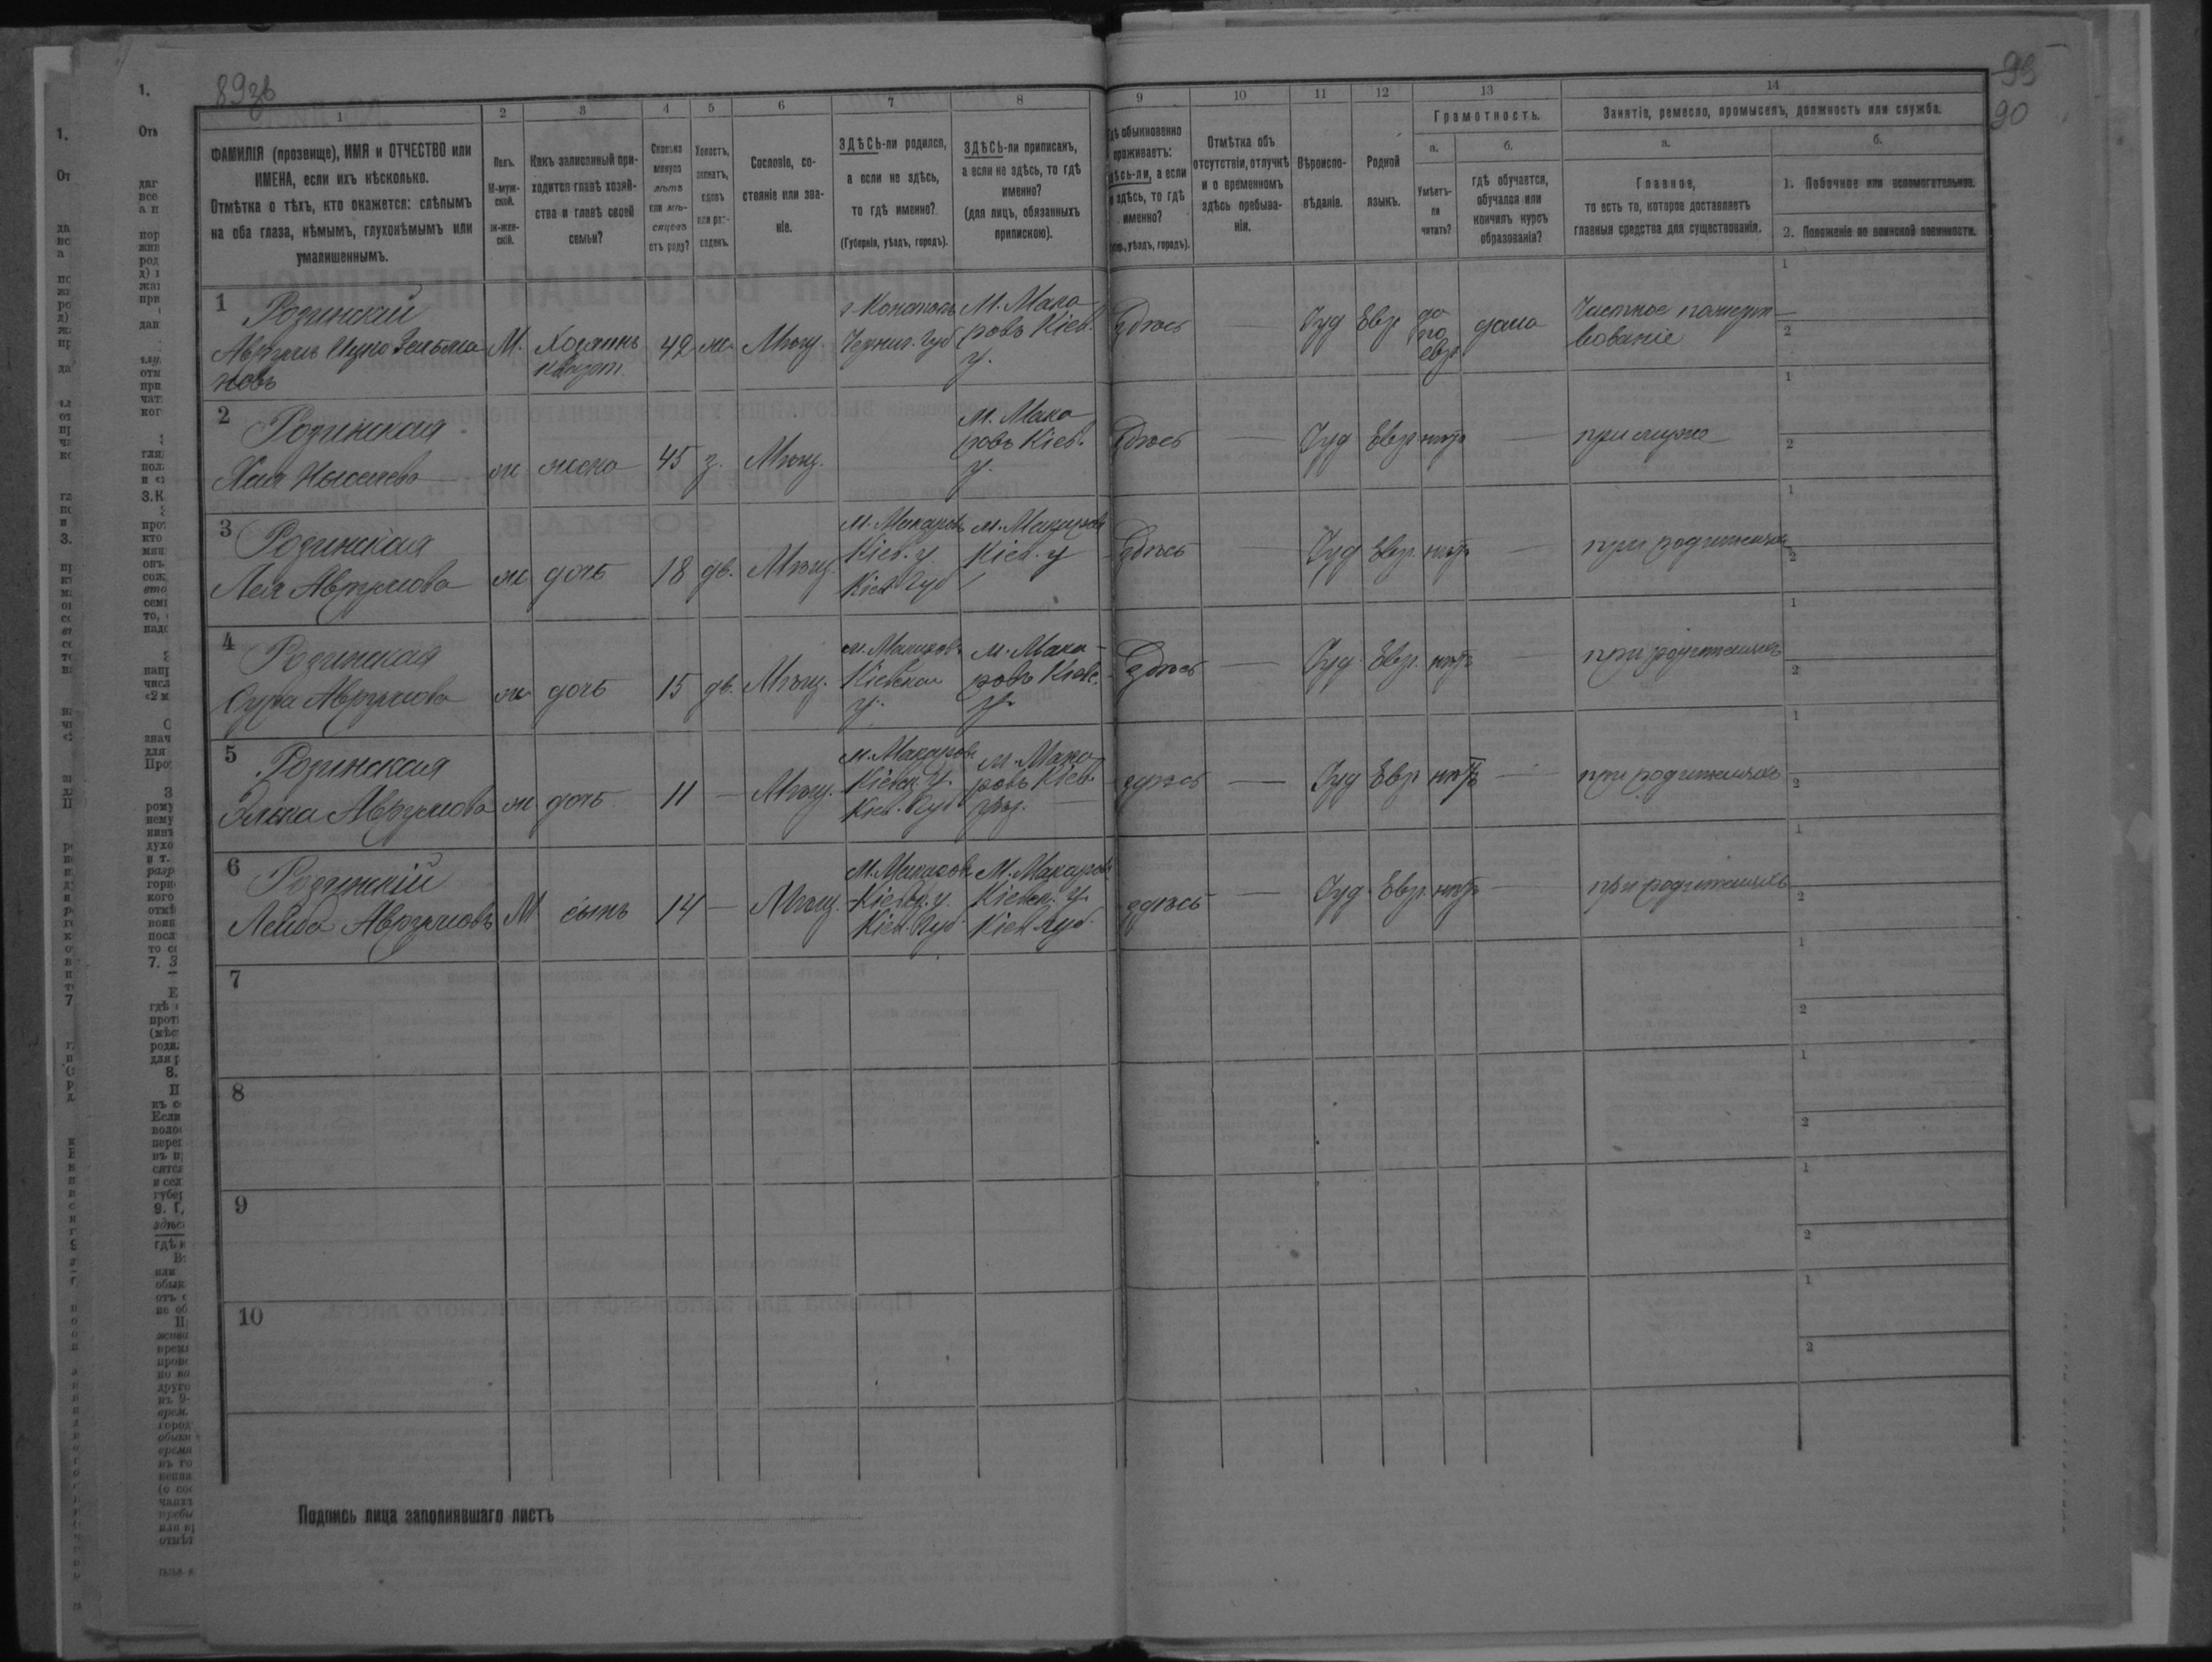 893в
95
90
1
2
3
4
5
6
7
8
9
10
11
12
13
14
ФАМИЛІЯ (прозвище), ИМЯ и ОТЧЕСТВО или
ИМЕНА, если ихъ нѣсколько.
Отмѣтка о тѣхъ, кто окажется: слѣпымъ
на оба глаза, нѣмымъ, глухонѣмымъ или
умалишеннымъ.
Полъ.
М-муж-
ской.
ж-жен-
скій.
Какъ записанный при-
ходится главѣ хозяй-
ства и главѣ своей
семьи?
Сколько
минуло
лѣтъ
или мѣ-
сяцевъ
отъ роду?
Холостъ,
женатъ,
вдовъ
или раз-
веденъ.
Сословіе, со-
стояніе или зва-
ніе.
ЗДѢСЬ-ли родился,
а если не здѣсь,
то гдѣ именно?
(Губернія, уѣздъ, городъ).
ЗДѢСЬ-ли приписанъ,
а если не здѣсь, то гдѣ
именно?
(для лицъ, обязанныхъ
припискою).
Гдѣ обыкновенно
проживаетъ:
здѣсь-ли, а если
не здѣсь, то гдѣ
именно?
(губ., уѣздъ, городъ).
Отмѣтка объ
отсутствіи, отлучкѣ
и о временномъ
здѣсь пребыва-
ніи.
Вѣроиспо-
вѣданіе.
Родной
языкъ.
Грамотность.
а.
Умѣетъ-
ли
читать?
б.
гдѣ обучается,
обучался или
кончилъ курсъ
образованія?
Занятіе, ремесло, промыселъ, должность или служба.
а.
Главное,
то есть то, которое доставляетъ
главныя средства для существованія.
б.
1. Побочное или вспомогательное.
2. Положеніе по воинской повинности.
1 Розинский
Аврумъ Ицко Зельма
новъ
М.
Хозяинъ
кварт.
42 ж Мѣщ
г. Конотопъ
Черниг. Губ
М. Мака
ровъ Кіев.
у.
Здѣсь — Іуд Евр
да
по
евр
дома
Частное пожерт
вованіе
1
2
2 Розинская
Хая
ж жена 45 з. Мѣщ.
М. Мака
ровъ Кіев.
у.
Здѣсь — Іуд Евр нѣтъ — при мужѣ
1
2
3 Розинская
Лея Аврумова
ж дочь 18 дв. Мѣщ.
м. Макаровъ
Кіев. у.
Кіев Губ
м. Макаровъ
Кіев. у
Здѣсь — Іуд Евр. нѣтъ — при родителяхъ
1
2
4 Розинская
Сура Аврумова
ж дочь 15 дв. Мѣщ.
м. Макаровъ
Кіевской
у.
м. Мака-
ровъ Кіевс.
у.
Здѣсь — Іуд. Евр. нѣтъ — при родителяхъ
1
2
5 Розинская
Элька Аврумова
ж дочь 11 — Мѣщ.
м. Макаровъ
Кіевск. у.
Кіев. Губ
м. Мака
ровъ Кіев.
уѣз.
здѣсь — Іуд Евр нѣтъ — при родителяхъ
1
2
6 Розинскій
Лейба Аврумовъ
М сынъ 14 — Мѣщ.
М. Макаровъ
Кіевск. у.
Кіев. Губ.
М. Макаровъ
Кіевск. у.
Кіев. Губ.
здѣсь — Іуд. Евр. нѣтъ — при родителяхъ
1
2
7
1
2
8
1
2
9
1
2
10
1
2
Подпись лица заполнявшаго листъ